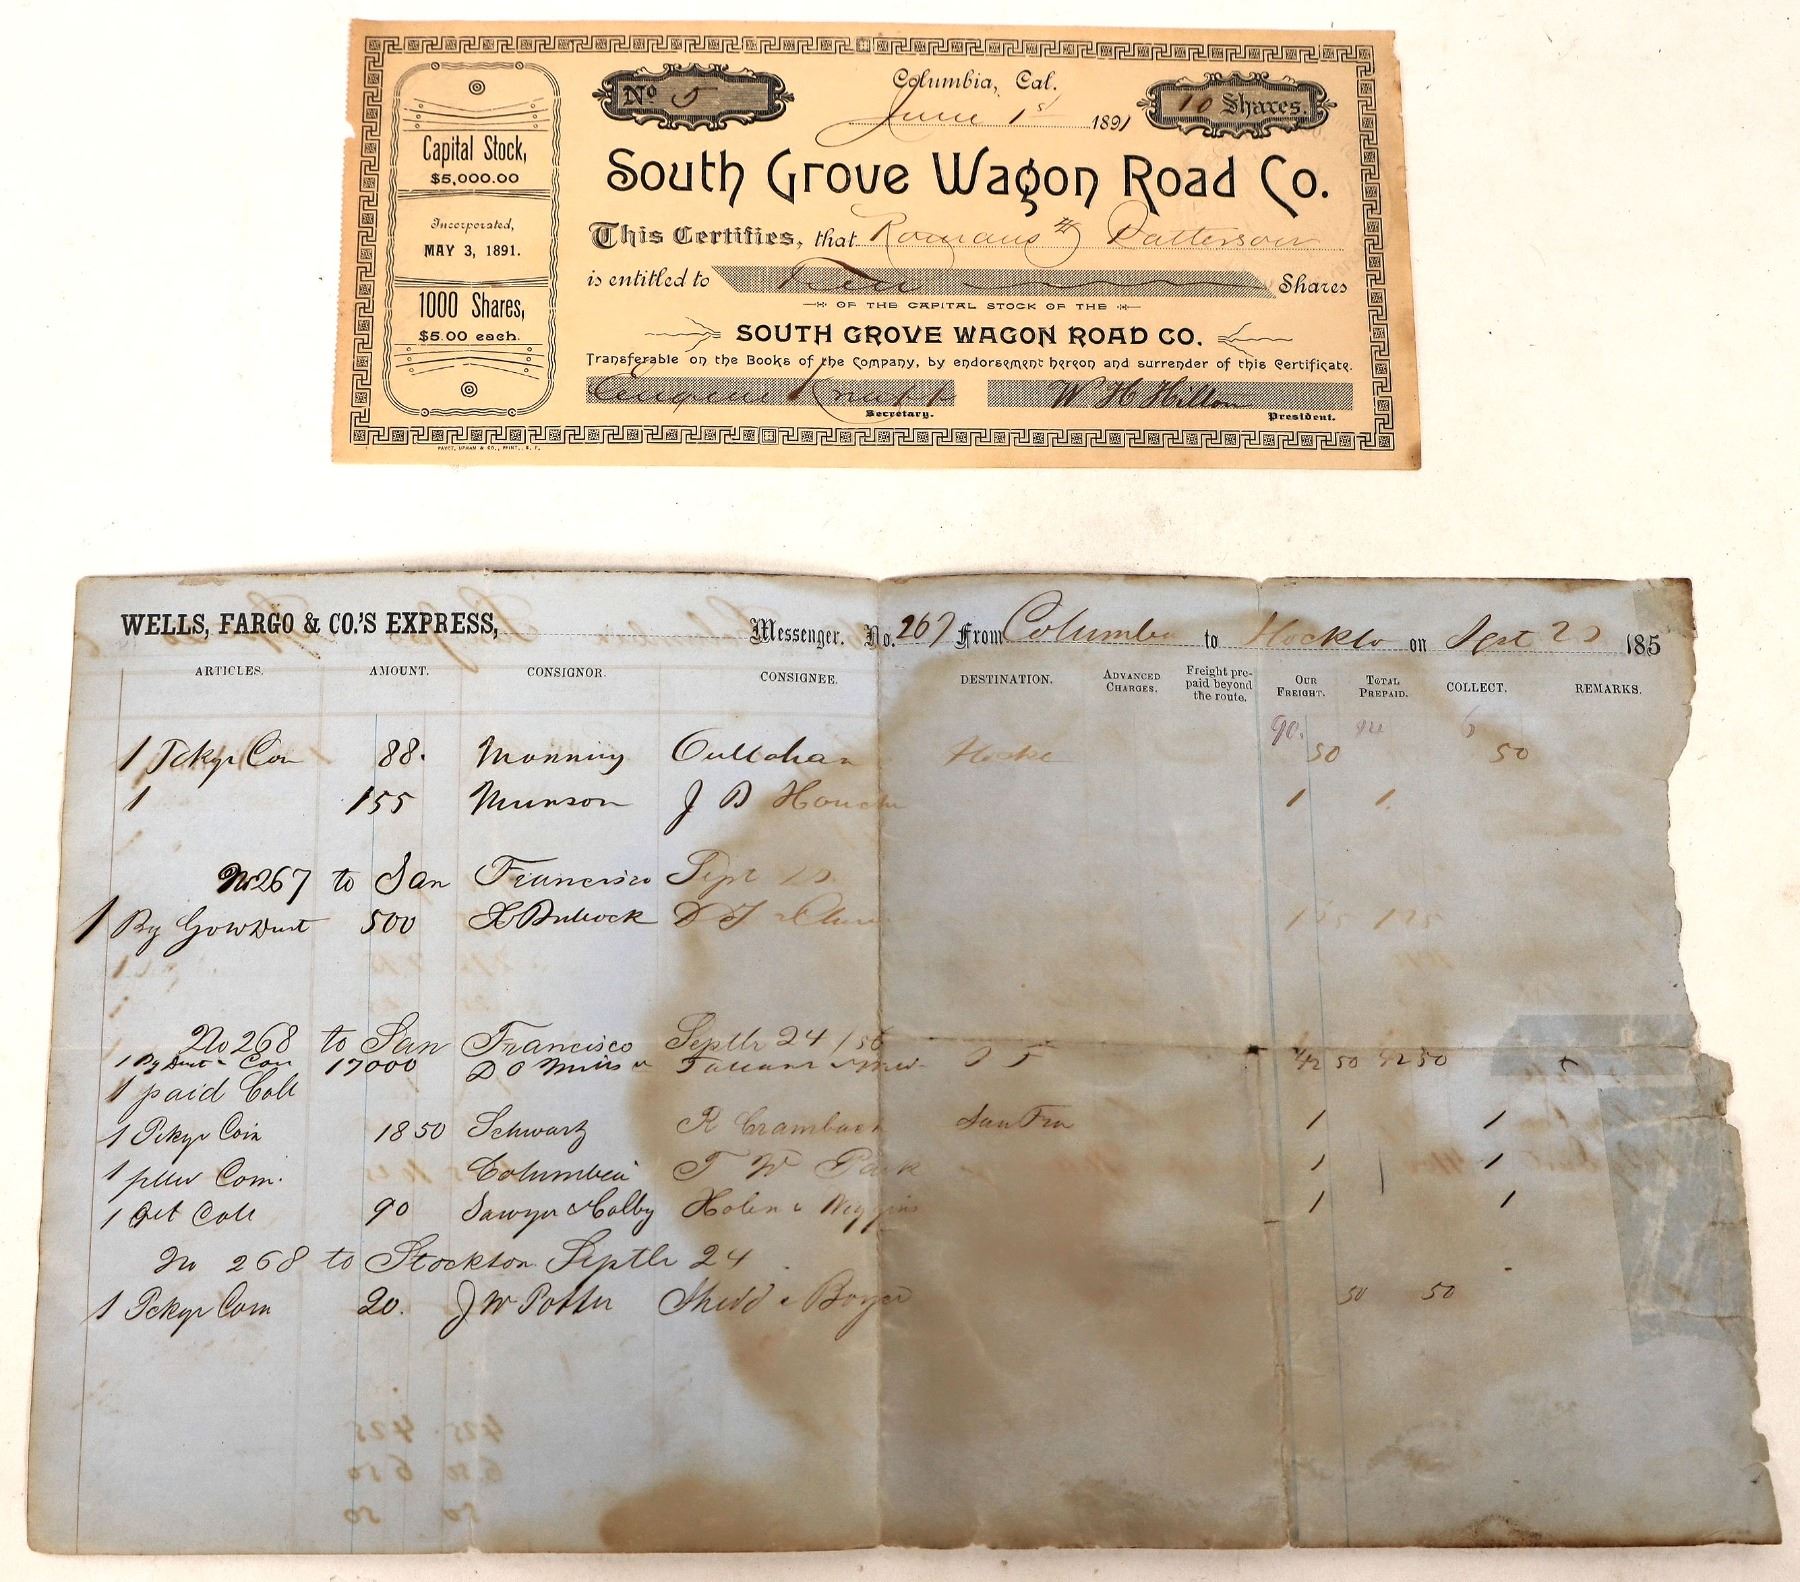 No 5
Columbia, Cal.
June 1st 1891
10 Shares.
Capital Stock,
$5,000.00
Incorporated,
MAY 3, 1891.
1000 Shares,
$5.00 each.
South Grove Wagon Road Co.
This Certifies, that Patterson
is entitled to Ten Shares
OF THE CAPITAL STOCK OF THE
SOUTH GROVE WAGON ROAD CO.
Transferable on the Books of the Company, by endorsement hereon and surrender of this Certificate.
Eugene Knapp
Secretary.
W H Hilton
President.
PAYOT, UPHAM & CO., PRINT., S. F.
WELLS, FARGO & CO.'S EXPRESS, Messenger. No. 267 From Columbia to Stockto on Sept 185
ARTICLES. AMOUNT. CONSIGNOR. CONSIGNEE. DESTINATION. ADVANCED CHARGES. Freight prepaid beyond the route. OUR FREIGHT. TOTAL PREPAID. COLLECT. REMARKS.
1 Pckge Coin 88. Manning Cullahan 50 50
1 155 Munson J B 1 1
No 267 to San Francisco Sept
1 500 125 125
No 268 to San Francisco Septbr 24 / 56
1 Coin 17000 D O Mills 42 50 42 50
1 paid Coll
1 Pckge Coin 1850 Schwartz R Crambach San Fra 1 1
1 Columbia T W Park 1 1
1 Coll 90 Sawyer & Colby Wiggins 1 1
No 268 to Stockton Septbr 24
1 Pckge Coin 20. J W Potter 50 50